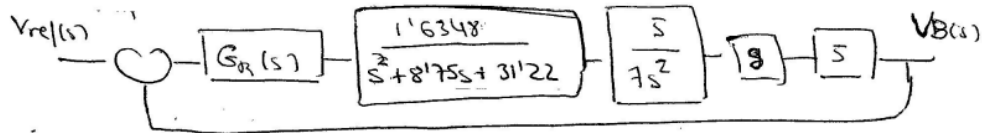 Vref(s)
G_R(s)
1'6348
s²+8'75s+31'22
5
7s²
g
s
VB(s)